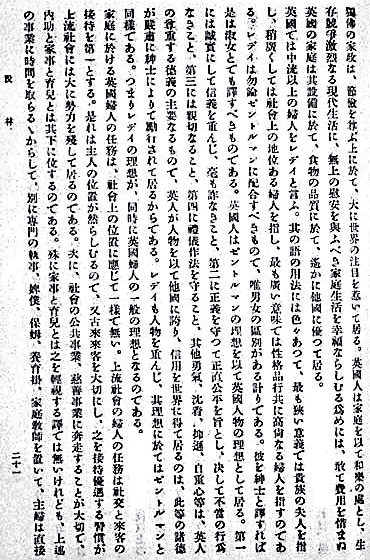 獨佛の家政は、節儉を尊ぶ上に於て、大に世界の注目を惹いて居る。英國人は家庭を以て和樂の處とし、生
存競爭激烈なる現代生活に、無上の慰安を與ふべき家庭生活を幸福ならしむる爲めには、敢て費用を惜まぬ
英國の家庭は其設備に於て、食物の品質に於て、遙かに他國に優つて居る。
英國では中流以上の婦人をレデイと言ふ。其の語の用法には色々あつて、最も狹い意義では貴族の夫人を指
し、稍廣くしては社會上の地位ある婦人を指し、最も廣い意味では性格品行共に高尙なる婦人を指すのであ
る。レデイは勿論ゼントルマンに配合すべきもので、唯男女の區別がある計りである。彼を紳士と譯すれば
是は淑女とでも譯すべきものである。英國人はゼントルマンの理想を以て英國人物の理想として居る。第一
には誠實にして信義を重んじ、毫も詐なきこと、第二に正義を守つて正直公平を旨とし、決して不當の行爲
なきこと、第三には親切なること、第四に禮儀作法を守ること、其他勇氣、沈着、抑遜、自重心等は、英人
の尊重する德義の主要なるもので、英人が人物を以て他國に誇り、信用を世界に得て居るのは、此等の諸德
が嚴肅に紳士によりて勵行されて居るからである。レデイも人物を重んじ、其理想に於てはゼントルマンと
同樣である。つまりレデイの理想が、同時に英國婦人の一般の理想となるのである。
家庭に於ける英國婦人の任務は、社會上の位置に應じて一樣で無い。上流社會の婦人の任務は社交と來客の
接待を第一とする。是れは主人の位置が然らしむるので、又古來來客を大切にし、之を接待優遇する習慣が
上流社會には大に勢力を殘して居るのである。次に、社會の公共事業、慈善事業に奔走することが大切で、
內助と家事と育兒とは其下に位するのである。殊に家事と育兒とは之を輕視する譯では無いけれども、上述
の事業に時間を取らるゝからして、別に專門の執事、婢僕、保姆、養育掛、家庭敎師を置いて、主婦は直接
說林
二十一